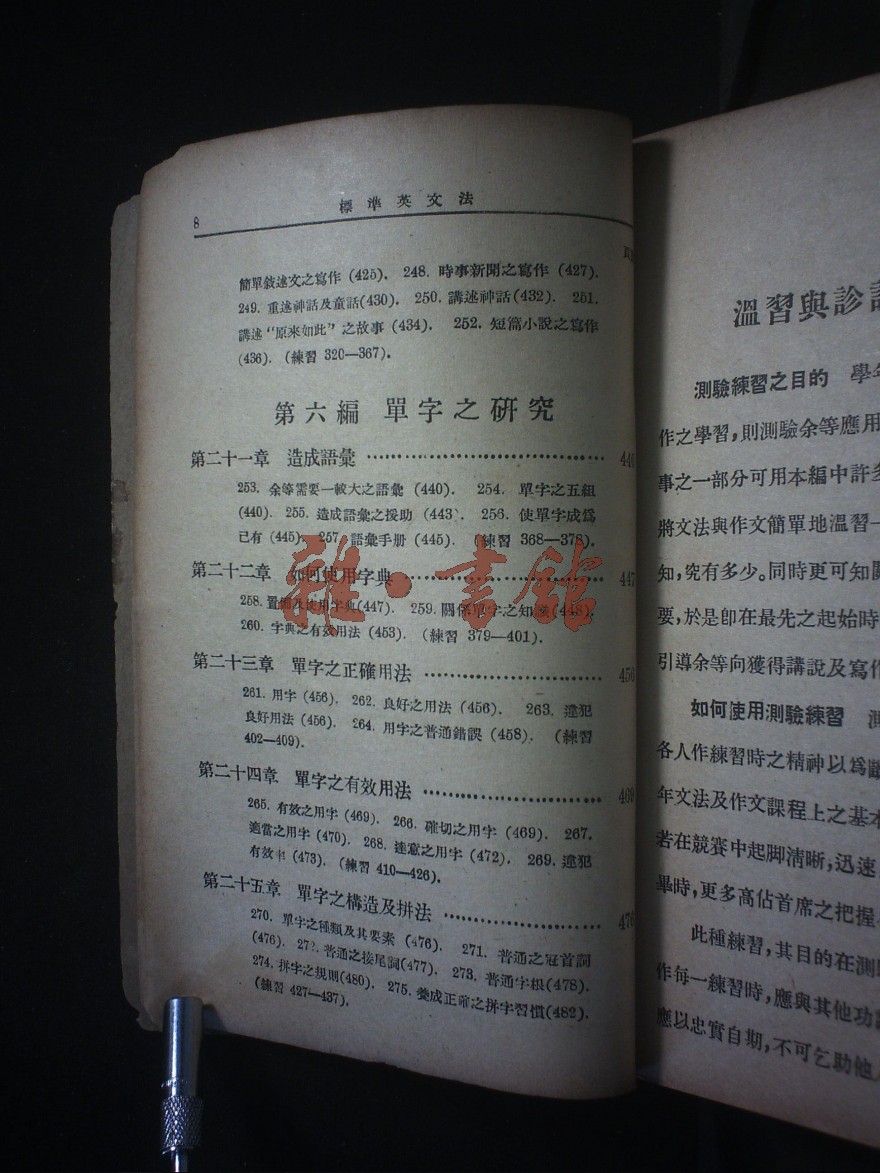 8 標準英文法
簡單敍述文之寫作 (425). 248. 時事新聞之寫作 (427).
249. 重述神話及童話(430). 250. 講述神話(432). 251.
講述“原來如此”之故事 (434). 252. 短篇小說之寫作
(436). (練習 320—367).
第六編 單字之研究
第二十一章 造成語彙 440
253. 余等需要一較大之語彙 (440). 254. 單字之五組
(440). 255. 造成語彙之援助 (443). 256. 使單字成爲
已有 (445). 257. 語彙手册 (445). (練習 368—378).
第二十二章 如何使用字典 447
258. 置備及使用字典(447). 259. 關係單字之知識 (448).
260. 字典之有效用法 (453). (練習 379—401).
第二十三章 單字之正確用法 456
261. 用字 (456). 262. 良好之用法 (456). 263. 違犯
良好用法 (456). 264. 用字之普通錯誤 (458). (練習
402—409).
第二十四章 單字之有效用法 469
265. 有效之用字 (469). 266. 確切之用字 (469). 267.
適當之用字 (470). 268. 達意之用字 (472). 269. 違犯
有效率 (473). (練習 410—426).
第二十五章 單字之構造及拼法 476
270. 單字之種類及其要素 (476). 271. 普通之冠首詞
(476). 272. 普通之接尾詞(477). 273. 普通字根(478).
274. 拼字之規則(480). 275. 養成正確之拼字習慣(482).
(練習 427—437).
雅·書館
溫習與診
測驗練習之目的 學年
作之學習,則測驗余等應用
事之一部分可用本編中許多
將文法與作文簡單地溫習一
知,究有多少。同時更可知
要,於是卽在最先之起始時
引導余等向獲得講說及寫作
如何使用測驗練習
各人作練習時之精神以爲斷
年文法及作文課程上之基本
若在競賽中起脚清晰,迅速
畢時,更多高佔首席之把握
此種練習,其目的在測
作每一練習時,應與其他功
應以忠實自期,不可乞助他